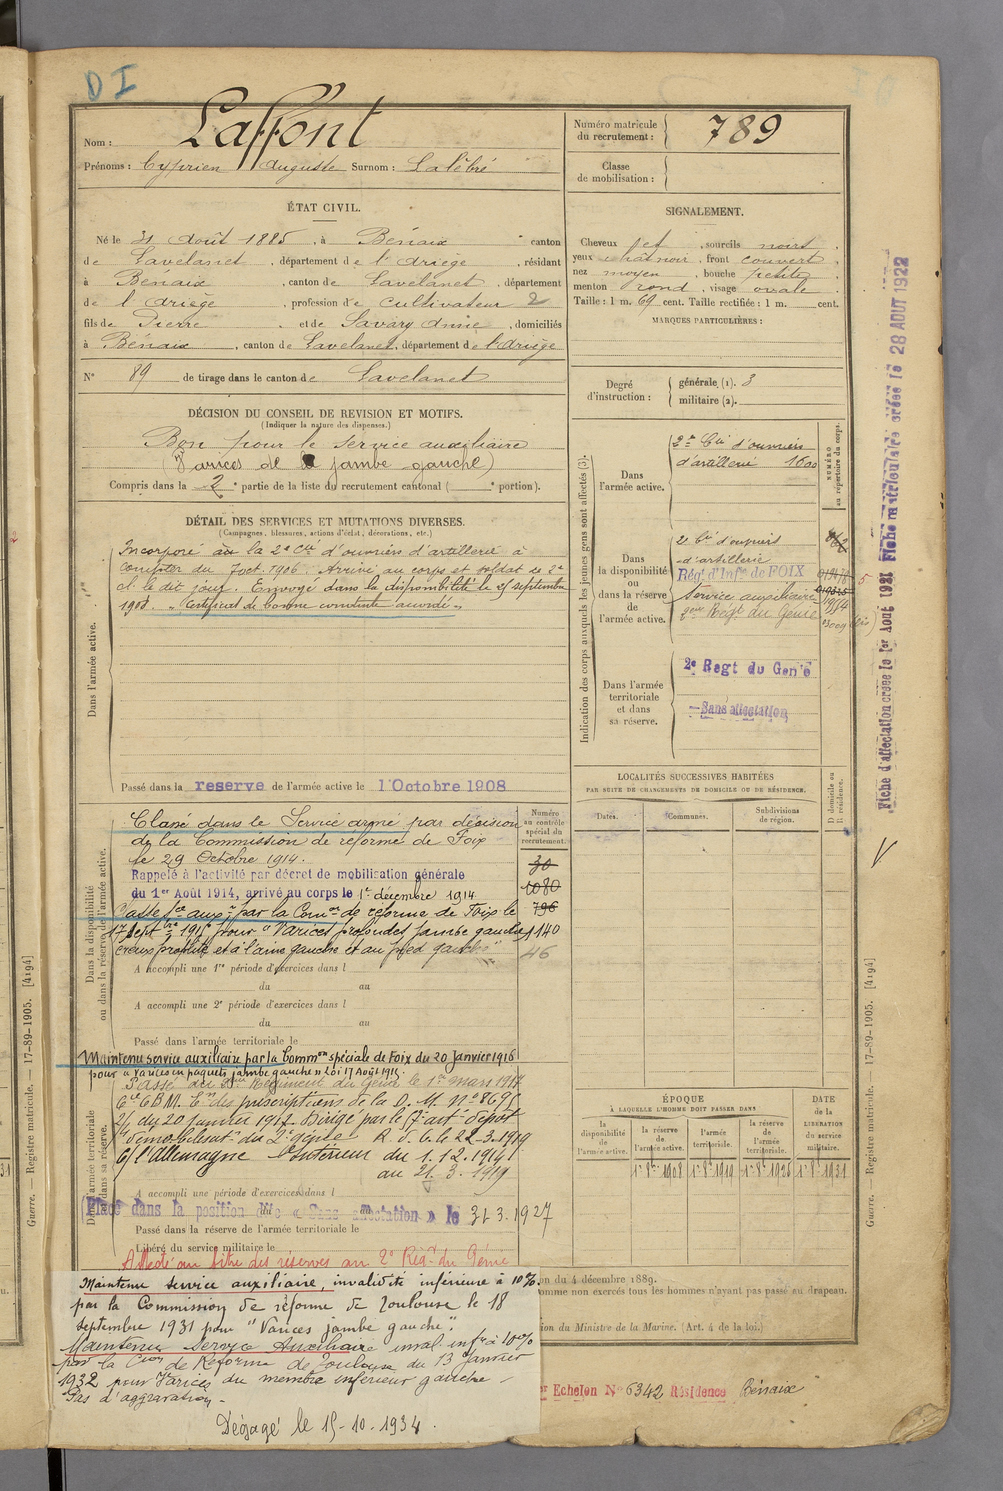 DI
Nom : Laffont
Prénoms : Cyprien Auguste Surnom : Lalêbré
Numéro matricule du recrutement : 789
Classe de mobilisation :
ÉTAT CIVIL.
Né le 31 Août 1885, à Bénaix canton
de Lavelanet, département de l'Ariège, résidant
à Bénaix, canton de Lavelanet, département
de l'Ariège, profession de cultivateur 2
fils de Pierre et de Savary Anne, domiciliés
à Bénaix, canton de Lavelanet, département de l'Ariège
N° 89 de tirage dans le canton de Lavelanet
SIGNALEMENT.
Cheveux , sourcils noirs,
yeux , front couvert,
nez moyen, bouche petite,
menton rond, visage ovale.
Taille : 1 m. 69 cent. Taille rectifiée : 1 m. cent.
MARQUES PARTICULIÈRES :
Degré d'instruction : générale (1). 3
militaire (2).
DÉCISION DU CONSEIL DE REVISION ET MOTIFS.
(Indiquer la nature des dispenses.)
Bon pour le service auxiliaire
(Varices de la jambe gauche)
Compris dans la 2e partie de la liste du recrutement cantonal ( e portion).
DÉTAIL DES SERVICES ET MUTATIONS DIVERSES.
(Campagnes, blessures, actions d'éclat, décorations, etc.)
Dans l'armée active.
Incorporé à la 2e Cie d'ouvriers d'artillerie à
compter du 7 oct. 1906. Arrivé au corps et soldat de 2e
cl. le dit jour. Envoyé dans la disponibilité le 25 septembre
1908. "Certificat de bonne conduite accordé"
Passé dans la reserve de l'armée active le 1 Octobre 1908
Indication des corps auxquels les jeunes gens sont affectés (3).
NUMÉRO au répertoire du corps.
Dans l'armée active.
2e Cie d'ouvriers
d'artillerie 1600
Dans la disponibilité ou dans la réserve de l'armée active.
2e Cie d'ouvriers
d'artillerie
Régt d'Infie de FOIX
Service auxiliaire
Régt du Génie
Dans l'armée territoriale et dans sa réserve.
2e Regt du Génie
Sans affectation
Fiche d'affectation créée le 1er Août 1922 Fiche matriculaire créée le 28 AOUT 1922
Dans la disponibilité ou dans la réserve de l'armée active.
Numéro au contrôle spécial du recrutement.
30
1080
796
1140
46
Classé dans le Service armé par décision
de la Commission de réforme de Foix
le 29 Octobre 1914.
Rappelé à l'activité par décret de mobilisation générale
du 1er Août 1914, arrivé au corps le 1er décembre 1914
Passé sce auxre par la Comon de réforme de Foix le
17 Septbre 1915 pour "Varices profondes jambe gauche,
et à l'aine gauche et au pied gauche"
A accompli une 1re période d'exercices dans l
du au
A accompli une 2e période d'exercices dans l
du au
Passé dans l'armée territoriale le
Maintenu service auxiliaire par la Common spéciale de Foix du 20 janvier 1916
pour "Varices en paquets jambe gauche" Loi 17 Août 1915.
Dans l'armée territoriale et dans sa réserve.
Passé au Régiment du Génie le 1er mars 1917
prescriptions de la D. M. N°
du 20 janvier 1917. Dirigé par le
Démobilisat. du 2e génie R. d. C. le 22-3-1919
C/ l'Allemagne Intérieur du 1.12.1914
au 21.3.1919
A accompli une période d'exercices dans l
Placé dans la position dite « Sans affectation » le 31-3-1927
Passé dans la réserve de l'armée territoriale le
Libéré du service militaire le
Affecté au titre des réserves au 2e Régt du Génie
LOCALITÉS SUCCESSIVES HABITÉES
PAR SUITE DE CHANGEMENTS DE DOMICILE OU DE RÉSIDENCE.
Dates. Communes. Subdivisions de région. D domicile ou R résidence.
ÉPOQUE
À LAQUELLE L'HOMME DOIT PASSER DANS
la disponibilité de l'armée active.
la réserve de l'armée active.
l'armée territoriale.
la réserve de l'armée territoriale.
DATE de la LIBÉRATION du service militaire.
1er 8bre 1908 1er 8bre 1919 1er 8bre 1926 1er 8bre 1931
on du 4 décembre 1889.
omme non exercés tous les hommes n'ayant pas passé au drapeau.
ion du Ministre de la Marine. (Art. 4 de la loi.)
Maintenu service auxiliaire, invalidité inférieure à 10%
par la Commission de réforme de Toulouse le 18
septembre 1931 pour "Varices jambe gauche".
Maintenu Service Auxiliaire inval. infre à 10%
par la Cion de Réforme de Toulouse du 13 Janvier
1932 pour Varices du membre inférieur gauche -
Pas d'aggravation -
Dégagé le 15-10-1934.
er Echelon N° 6342 Résidence Bénaix
Guerre. — Registre matricule. — 17-89-1905. [4194]
Guerre. — Registre matricule. — 17-89-1905. [4194]